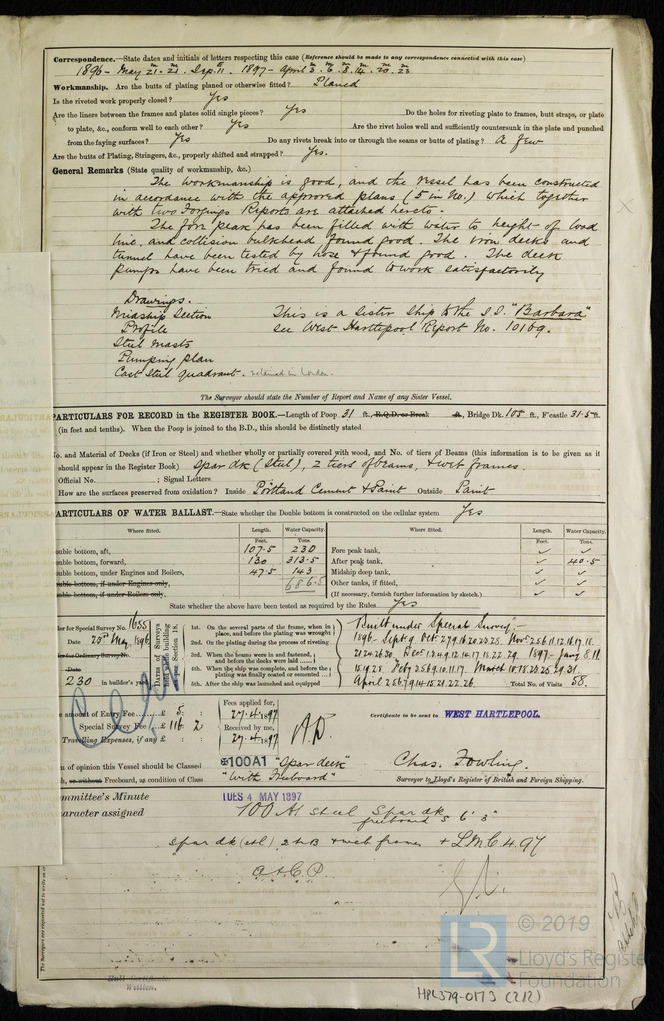 Correspondence.—State dates and initials of letters respecting this case (Reference should be made to any correspondence connected with this case)
1896 - May 21. 21. Sep. 11. 1897 - April
Workmanship. Are the butts of plating planed or otherwise fitted? Planed
Is the riveted work properly closed? Yes
Are the liners between the frames and plates solid single pieces? Yes Do the holes for riveting plate to frames, butt straps, or plate
to plate, &c., conform well to each other? Yes Are the rivet holes well and sufficiently countersunk in the plate and punched
from the faying surfaces? Yes Do any rivets break into or through the seams or butts of plating? A few
Are the butts of Plating, Stringers, &c., properly shifted and strapped? Yes.
General Remarks (State quality of workmanship, &c.)
The workmanship is good, and the vessel has been constructed
in accordance with the approved plans (5 in No.) which together
with two Forgings Reports are attached hereto.
The fore peak has been filled with water to height of load
line, and collision bulkhead found good. The iron decks and
tunnel have been tested by hose & found good. The deck
pumps have been tried and found to work satisfactorily
Drawings.
Midship Section This is a Sister Ship to the S.S. "Barbara"
Profile see West Hartlepool Report No. 10169.
Steel Masts
Pumping plan
Cast Steel quadrant. retained in London.
The Surveyor should state the Number of Report and Name of any Sister Vessel.
PARTICULARS FOR RECORD in the REGISTER BOOK.—Length of Poop 31 ft., R.Q.D. or Break ft., Bridge Dk. 108 ft., F'castle 31.5 ft.
(in feet and tenths). When the Poop is joined to the B.D., this should be distinctly stated
No. and Material of Decks (if Iron or Steel) and whether wholly or partially covered with wood, and No. of tiers of Beams (this information is to be given as it
should appear in the Register Book) Spar dk (Steel), 2 tiers of beams, & web frames.
Official No. ; Signal Letters
How are the surfaces preserved from oxidation? Inside Portland Cement & Paint Outside Paint
ARTICULARS OF WATER BALLAST.—State whether the Double bottom is constructed on the cellular system Yes
Where fitted. Length. Water Capacity. Where fitted. Length. Water Capacity.
Feet. Tons. Feet. Tons.
uble bottom, aft, 107.5 230 Fore peak tank, ✓ ✓
uble bottom, forward, 130 313.5 After peak tank, ✓ 40.5
uble bottom, under Engines and Boilers, 47.5 143 Midship deep tank, ✓ ✓
uble bottom, if under Engines only, 686.5 Other tanks, if fitted, ✓ ✓
uble bottom, if under Boilers only, (If necessary, furnish further information by sketch.) ✓ ✓
State whether the above have been tested as required by the Rules Yes
der for Special Survey No. 1655
Date 20th May 1896
der for Ordinary Survey No.
Date
230 in builder's yard
Dates of Surveys held while building as per Section 18.
1st. On the several parts of the frame, when in place, and before the plating was wrought
2nd. On the plating during the process of riveting
3rd. When the beams were in and fastened, and before the decks were laid
4th. When the ship was complete, and before the plating was finally coated or cemented
5th. After the ship was launched and equipped
Built under Special Survey:-
1896 - Sept. 9. Oct. 2.7.9.16.20.23.28. Nov. 2.5.6.11.12.16.17.18.
21.24.26.30. Dec. 1.3.4.9.12.14.17.18.22.29. 1897 - Jany. 8.11.
15.19.28. Feby 2.5.6.9.10.11.17. March 10.18.23.25.29.31.
April 2.5.6.7.9.14.15.21.22.26. Total No. of Visits 58.
amount of Entry Fee £ 5 : :
Special Survey Fee £ 116 : 2
Travelling Expenses, if any £ : :
Fees applied for,
27.4.1897
Received by me,
27.4.1897
Certificate to be sent to WEST HARTLEPOOL.
m of opinion this Vessel should be Classed ✠100A1 "Spar deck"
h, or without Freeboard, as condition of Class "With Freeboard"
Chas. Fowling.
Surveyor to Lloyd's Register of British and Foreign Shipping.
mmittee's Minute TUES 4 MAY 1897
aracter assigned 100 A1 Steel Spar dk
freeboard 5' 6' 3"
Spar dk (stl) 2 tr B & web frames + L.M.C. 4.97
A.&C.P.
Hull Certificate
Written.
© 2019
Lloyd's Register
Foundation
HPL379-0173 (2/2)